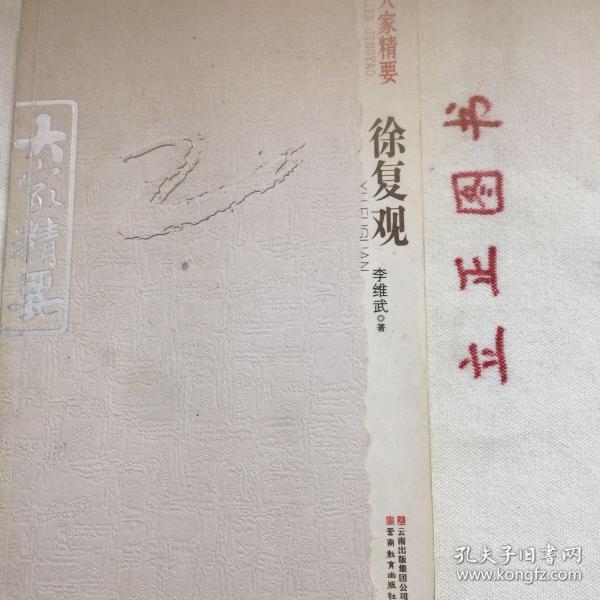 大家精要
大家精要
DAJIA JINGYAO
徐复观
XU FUGUAN
李维武◎著
云南出版集团公司
云南教育出版社
立正图书
孔夫子旧书网
www.kongfz.com